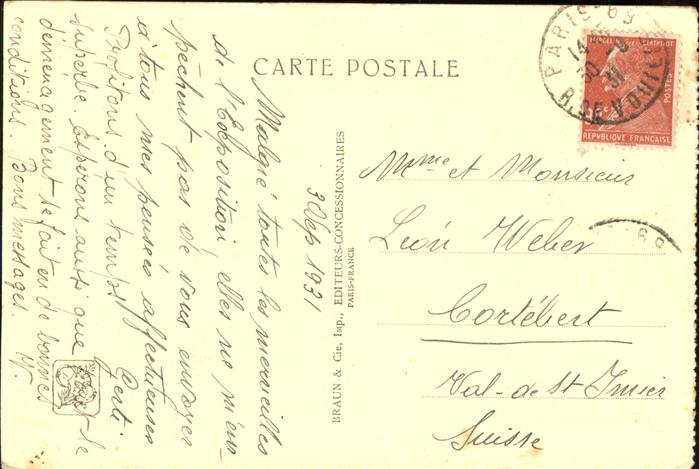 CARTE POSTALE
3 Sep 1931
Malgré toutes les merveilles
de l'Exposition, elles ne m'em-
pêchent pas de vous envoyer
à tous mes pensées affectueuses
Gerti
Profitons d'un temps
superbe. Espérons aussi que le
déménagement se fait en de bonnes
conditions. Bons messages.
BRAUN & Cie, Imp., EDITEURS-CONCESSIONNAIRES
PARIS-FRANCE
PARIS-69
R. DE VOUILLÉ
31
POSTES
REPVBLIQVE FRANÇAISE
Mme et Monsieur
Léon Weber
Cortébert
Val-de-St Imier
Suisse
69